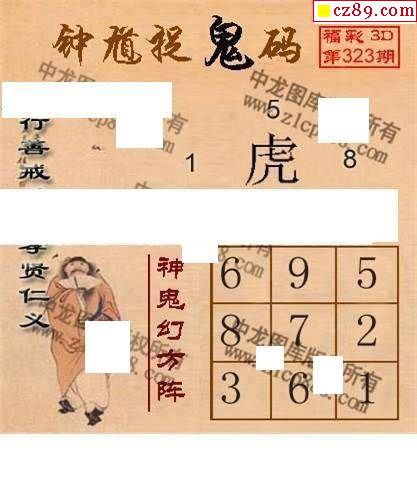 cz89.com
钟馗捉鬼码
福彩3D
第323期
5
1 虎 8
行善戒
尊贤仁义
神鬼幻方阵
6 9 5
8 7 2
3 6 1
中龙图库
所有
www.zlcp
中龙图库版权所有